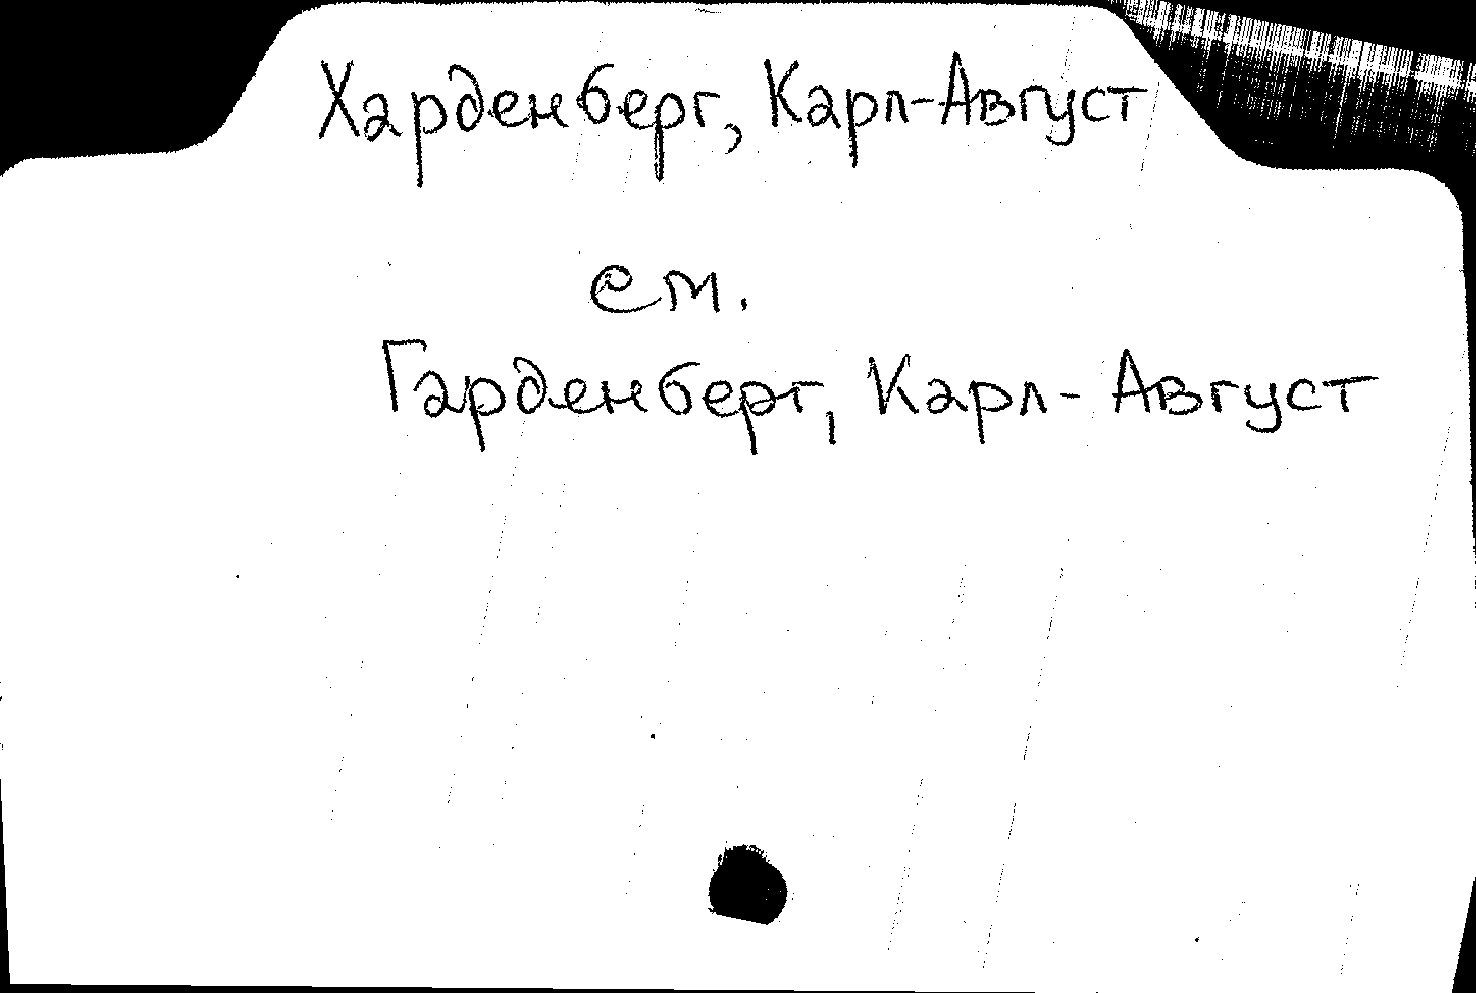 Харденберг, Карл-Август
см.
Гарденберг, Карл-Август